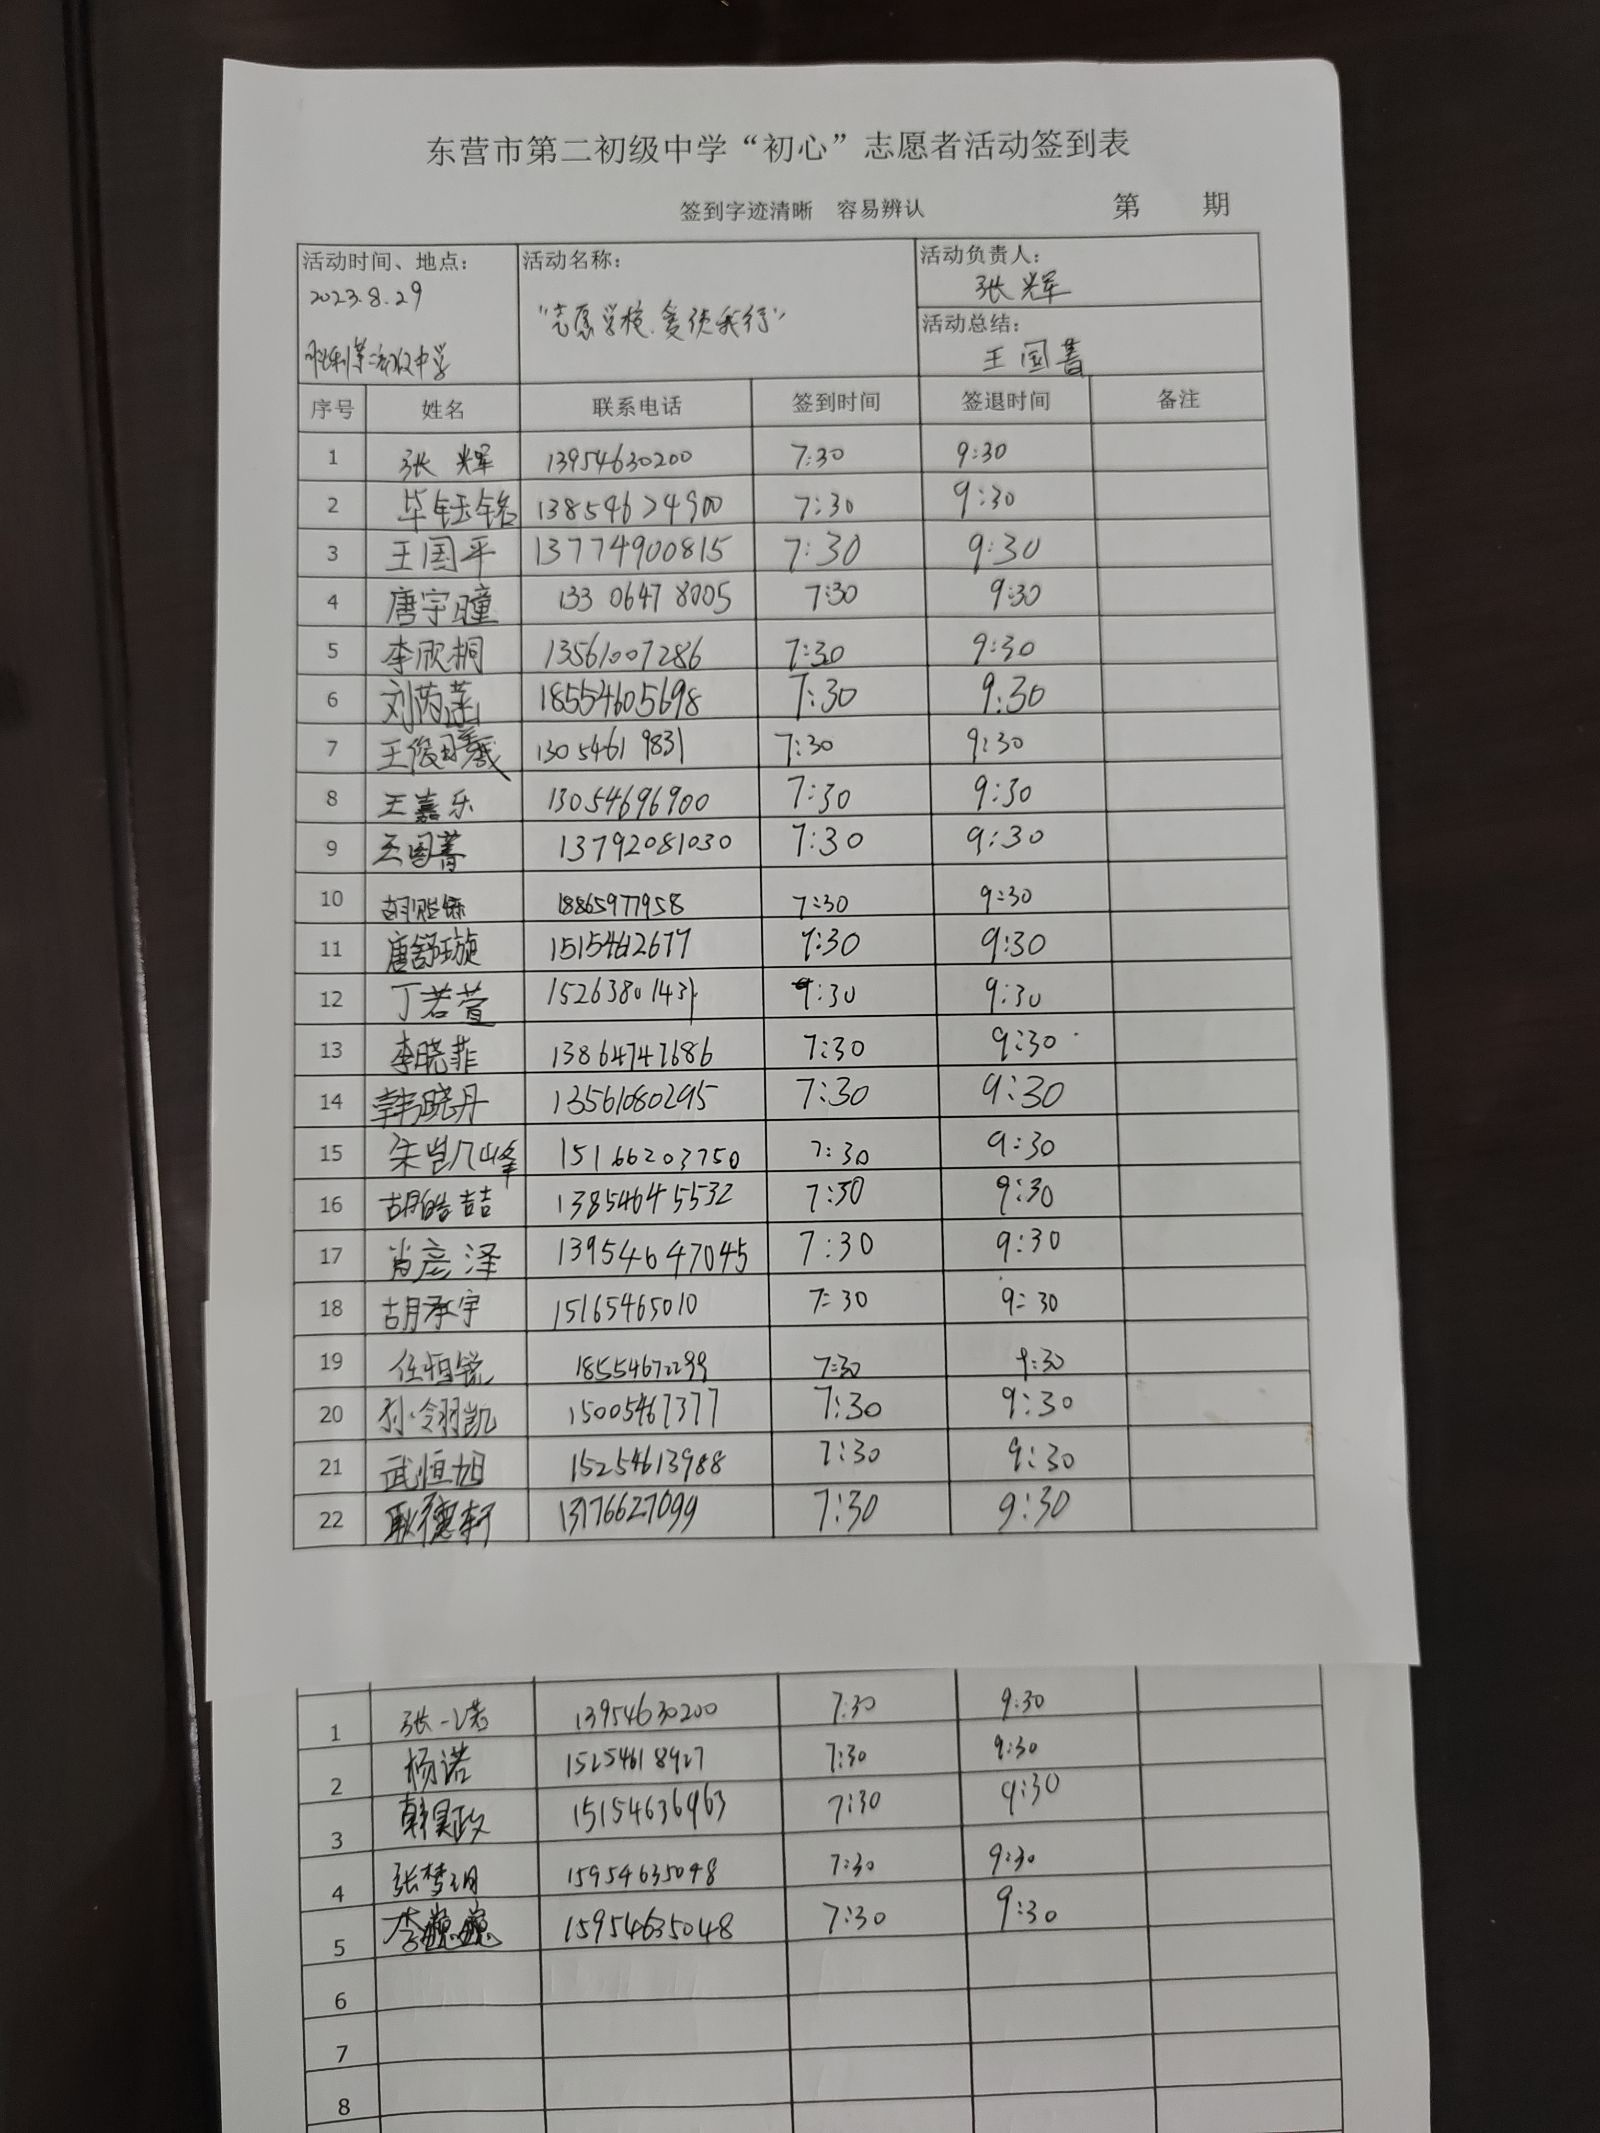 东营市第二初级中学“初心”志愿者活动签到表
签到字迹清晰 容易辨认 第 期
活动时间、地点： 活动名称： 活动负责人：
2023.8.29 张辉
“志愿学校,爱徒我行” 活动总结：
第二初级中学 王国菁
序号 姓名 联系电话 签到时间 签退时间 备注
1 张辉 13954630200 7:30 9:30
2 毕钰铭 13854624900 7:30 9:30
3 王国平 13774900815 7:30 9:30
4 唐宇曈 133 0647 8005 7:30 9:30
5 李欣桐 13561007286 7:30 9:30
6 刘芮菡 18554605698 7:30 9:30
7 王俊曦 1305461 9831 7:30 9:30
8 王嘉乐 13054696900 7:30 9:30
9 王国菁 13792081030 7:30 9:30
10 18865977958 7:30 9:30
11 唐舒璇 15154612677 7:30 9:30
12 丁若萱 15263801431 7:30 9:30
13 李晓菲 13864747686 7:30 9:30
14 韩晓丹 13561080295 7:30 9:30
15 朱凯峰 15166203750 7:30 9:30
16 胡皓喆 13854645532 7:30 9:30
17 肖彦泽 13954647045 7:30 9:30
18 胡承宇 15165465010 7:30 9:30
19 任恒锐 18554672299 7:30 9:30
20 孙翎凯 15005467377 7:30 9:30
21 武恒旭 15254613988 7:30 9:30
22 耿德轩 13176627099 7:30 9:30
1 张一诺 13954630200 7:30 9:30
2 杨诺 15254618927 7:30 9:30
3 韩昊政 15154636963 7:30 9:30
4 张梦玥 15954635048 7:30 9:30
5 李 15954635048 7:30 9:30
6
7
8